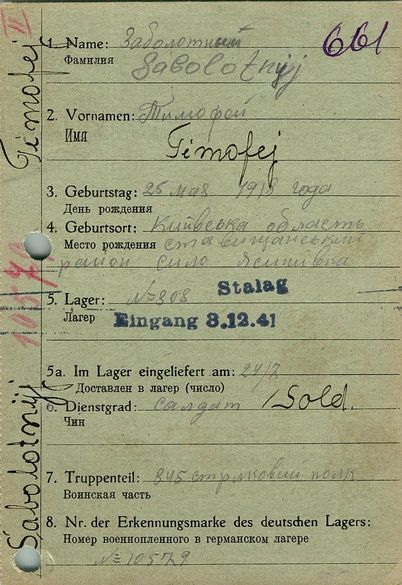 II
661
1. Name: Заболотний
Фамилия
Sabolotnyj
2. Vornamen: Тимофей
Имя
Timofej
3. Geburtstag: 26 мая 1918 года
День рождения
4. Geburtsort: Київська область
Место рождения Ставищанський
район село
5. Lager: № 308 Stalag
Лагер Eingang 8.12.41
5a. Im Lager eingeliefert am: 24/7
Доставлен в лагер (число)
6. Dienstgrad: Салдат / Sold.
Чин
7. Truppenteil: 845 стрлковий полк
Воинская часть
8. Nr. der Erkennungsmarke des deutschen Lagers:
Номер военнопленного в германском лагере
№ 10579
Sabolotnyj Timofej
10579